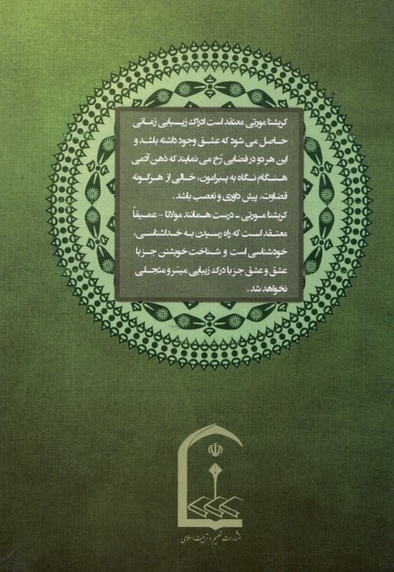 کریشنا مورتی معتقد است ادراک زیبایی زمانی
حاصل می شود که عشق وجود داشته باشد و
این هر دو در فضایی رخ می نمایند که ذهن آدمی
هنگام نگاه به پیرامون، خالی از هرگونه
قضاوت، پیش داوری و تعصب باشد.
کریشنا مورتی - درست همانند مولانا - عمیقاً
معتقد است که راه رسیدن به خداشناسی،
خودشناسی است و شناخت خویشتن جز با
عشق و عشق جز با درک زیبایی میسّر و متجلی
نخواهد شد.
انتشارات تعلیم و تربیت اسلامی